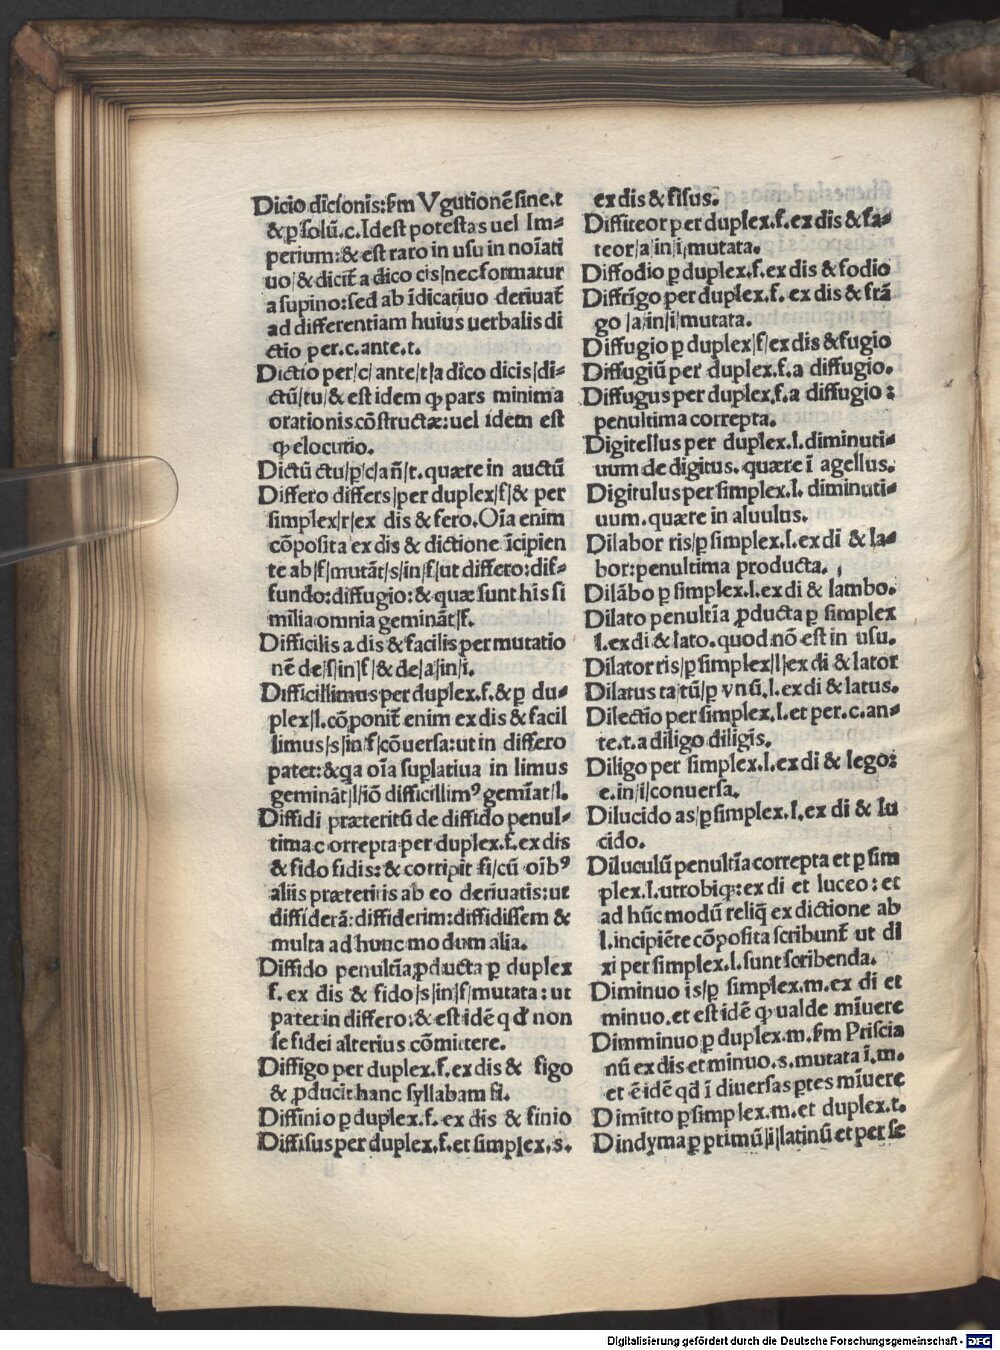 Dicio dicionis:ẜm Vgutionē sine.t
& ꝑ solū.c. Idest potestas uel Im⸗
perium:& est raro in usu in noīati
uo/& diciť a dico cis/nec formatur
a supino:sed ab īdicatiuo deriuať
ad differentiam huius uerbalis di
ctio per.c.ante.t.
Dictio per/c/ante/t/a dico dicis/di⸗
ctū/tu/& est idem ꝙ pars minima
orationis cōstructæ:uel idem est
ꝙ elocutio.
Dictū ctu/ꝑ/c/añ/t.quære in auctū
Differo differs/per duplex/f/& per
simplex/r/ex dis & fero.Oīa enim
cōposita ex dis & dictione īcipien
te ab/f/mutāt/s/in/f/ut differo:dif⸗
fundo:diffugio:& quæ sunt his si
milia omnia gemināt/f.
Difficilis a dis & facilis per mutatio
nē de/s/in/f/& de/a/in/i.
Difficillimus per duplex.f.& ꝑ du⸗
plex/l.cōponiť enim ex dis & facil
limus/s/in/f/cōuersa:ut in differo
patet:& qa oīa suꝑlatiua in limus
gemināt/l/iō difficillimꝰ gemīať/l.
Diffidi præteritū de diffido penul⸗
tima correpta per duplex.f.ex dis
& fido fidis:& corripit fi/cū oībꝰ
aliis præteritis ab eo deriuatis:ut
diffiderā:diffiderim:diffidissem &
multa ad hunc modum alia.
Diffido penultīa ꝓducta ꝑ duplex
f. ex dis & fido/s/in/f/mutata:ut
patet in differo:& est idē qđ non
se fidei alterius cōmittere.
Diffigo per duplex.f.ex dis & figo
& ꝓducit hanc syllabam fi.
Diffinio ꝑ duplex.f. ex dis & finio
Diffisus per duplex.f.et simplex.s.
ex dis & fisus.
Diffiteor per duplex.f.ex dis & fa⸗
teor/a/in/i/mutata.
Diffodio ꝑ duplex.f.ex dis & fodio
Diffrīgo per duplex.f. ex dis & frā
go /a/in/i/mutata.
Diffugio ꝑ duplex/f/ex dis & fugio
Diffugiū per duplex.f.a diffugio.
Diffugus per duplex.f.a diffugio:
penultima correpta.
Digitellus per duplex.l.diminuti⸗
uum de digitus.quære ī agellus.
Digitulus per simplex.l. diminuti⸗
uum.quære in aluulus.
Dilabor ris/ꝑ simplex.l.ex di & la⸗
bor:penultima producta.
Dilābo ꝑ simplex.l.ex di & lambo.
Dilato penultīa ꝓducta ꝑ simplex
l.ex di & lato.quod nō est in usu.
Dilator ris/ꝑ simplex/l/ex di & lator
Dilatus ta tū/ꝑ vnū.l.ex di & latus.
Dilectio per simplex.l.et per.c.an⸗
te.t.a diligo diligis.
Diligo per simplex.l.ex di & lego:
e.in/i/conuersa.
Dilucido as/ꝑ simplex.l.ex di & lu
cido.
Diluculū penultīa correpta et ꝑ sim
plex.l.utrobiqꝫ:ex di et luceo:et
ad hūc modū reliq̄ ex dictione ab
l.incipiēte cōposita scribunť ut di
xi per simplex.l.sunt scribenda.
Diminuo is/ꝑ simplex.m.ex di et
minuo.et est idē ꝙ ualde mīuere
Dimminuo ꝑ duplex.m.ẜm Priscia
nū ex dis et minuo.s.mutata ī.m.
et ē idē qđ ī diuersas ꝑtes mīuere
Dimitto ꝑ simplex.m.et duplex.t.
Dindyma ꝑ ptimū/i/latinū et per se
Digitalisierung gefördert durch die Deutsche Forschungsgemeinschaft - DFG